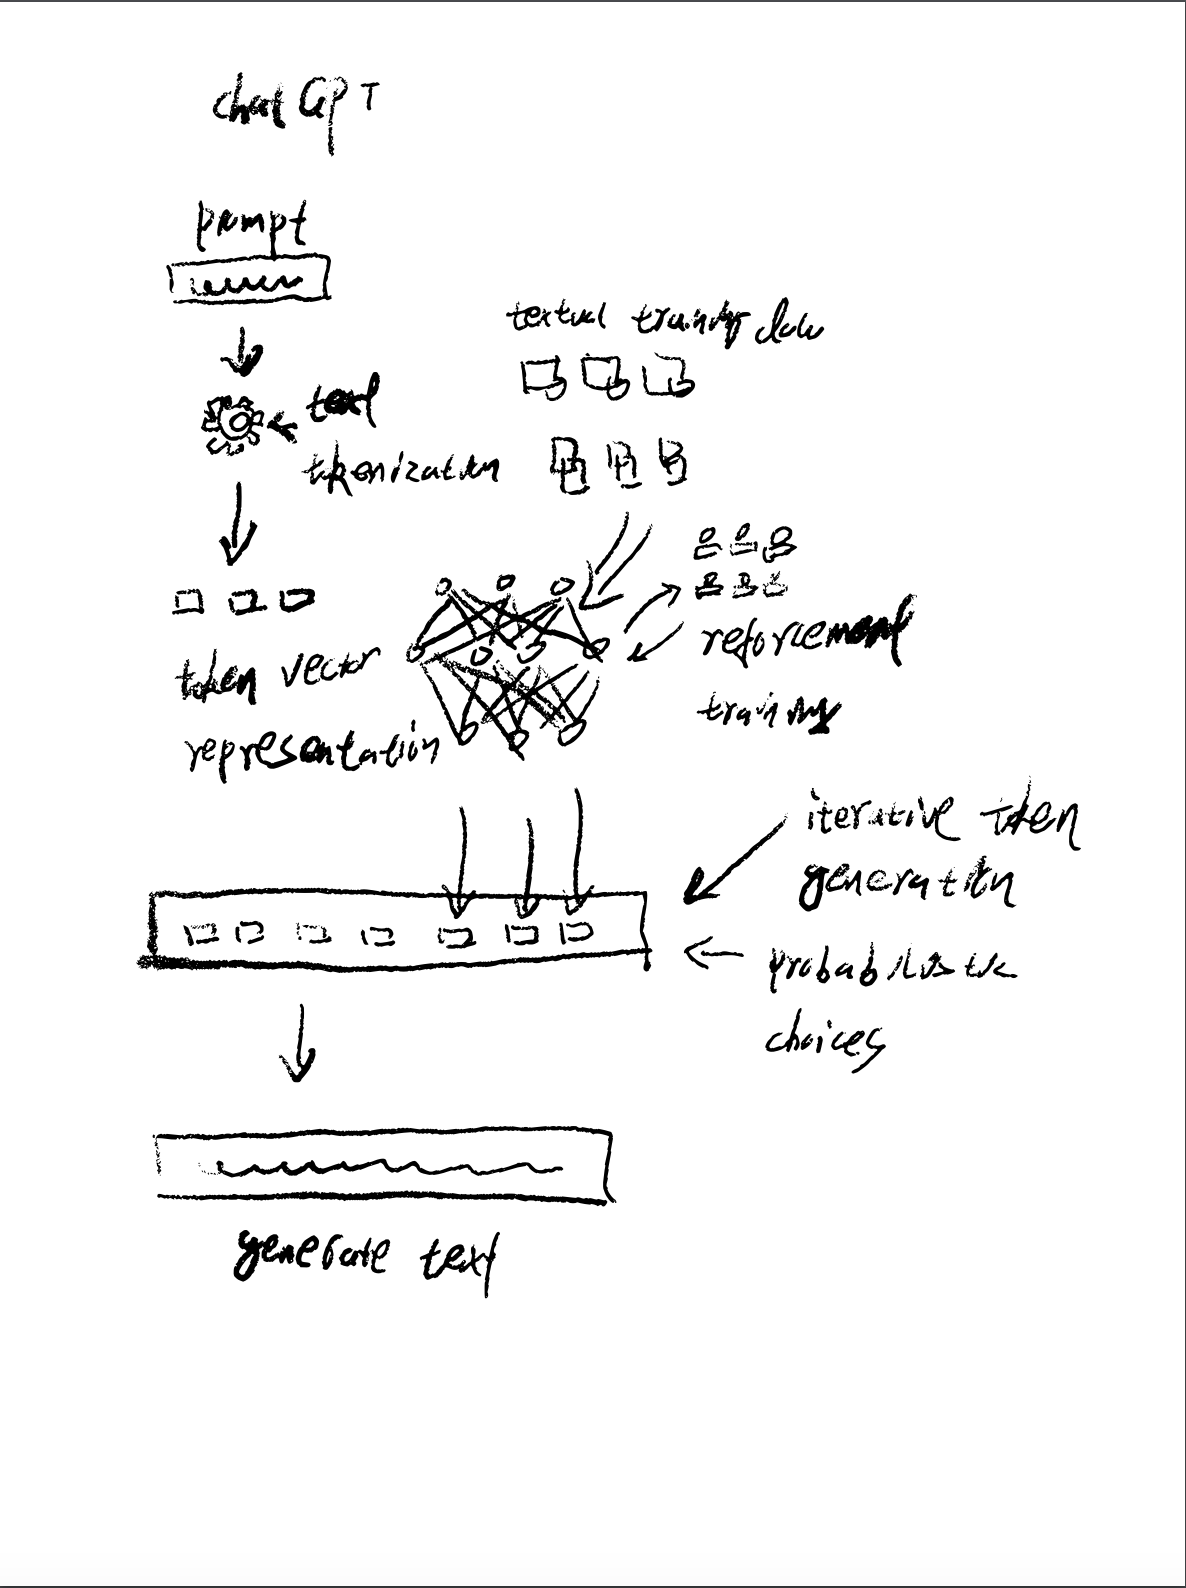 chat GPT
prompt
textual training data
text
tokenization
token vector
representation
reforcement
training
iterative token
generation
probabilistic
choices
generate text